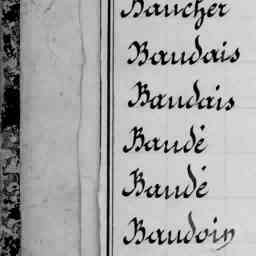 Baucher
Baudais
Baudais
Baudé
Baudé
Baudoin